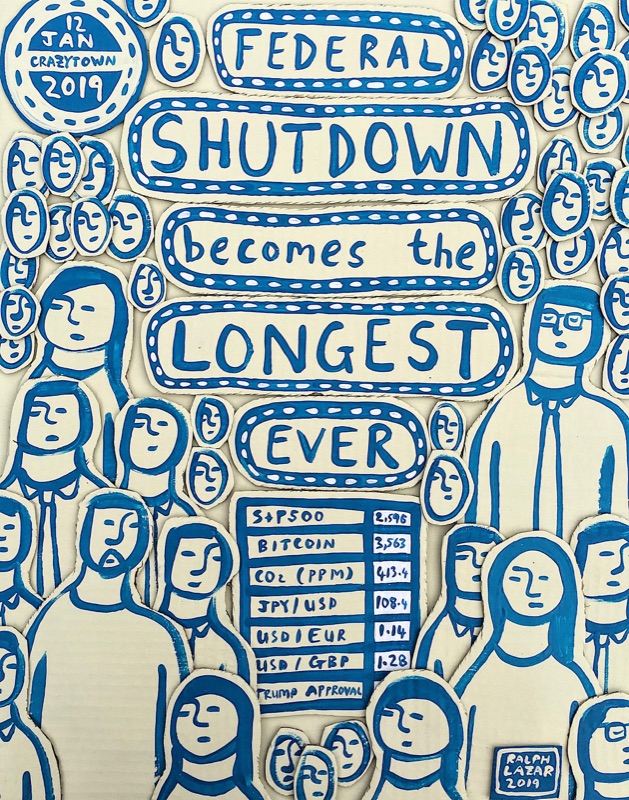 12
JAN
CRAZYTOWN
2019
FEDERAL
SHUTDOWN
becomes the
LONGEST
EVER
S+P500 2,596
BITCOIN 3,563
CO2 (PPM) 413.4
JPY/USD 108.4
USD/EUR 1.14
USD/GBP 1.28
TRUMP APPROVAL
RALPH
LAZAR
2019